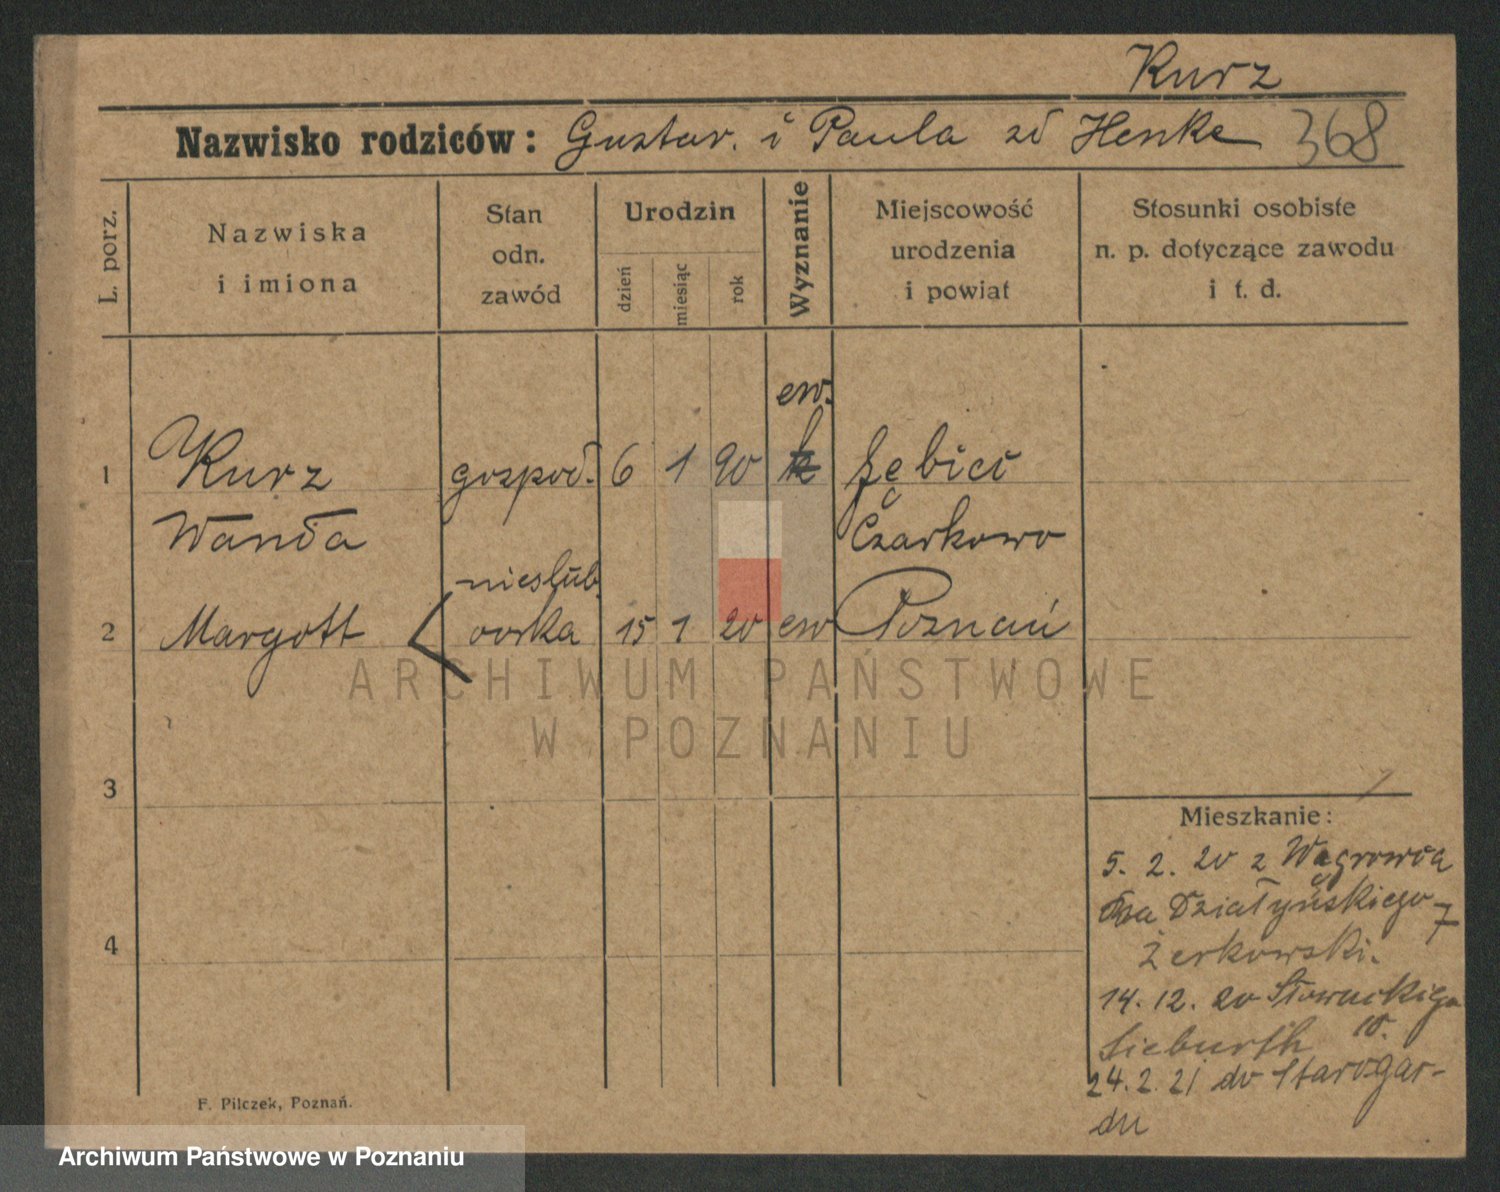 Kurz
Nazwisko rodziców: Gustav. i Paula zd Henke 368
L. porz.
Nazwiska
i imiona
Stan
odn.
zawód
Urodzin
dzień
miesiąc
rok
Wyznanie
Miejscowość
urodzenia
i powiat
Stosunki osobiste
n. p. dotyczące zawodu
i t. d.
ew.
1 Kurz gospod. 6 1 90 k
Wanda Czarkowo
nieślub.
2 Margott córka 15 1 20 ew Poznań
ARCHIWUM PAŃSTWOWE
W POZNANIU
3
Mieszkanie:
5. 2. 20 z Wągrowca
Działyńskiego 7
4
Żerkowski.
14. 12. 20 Słowackiego
Sieburth 10.
24. 2. 21 do Starogar-
du
F. Pilczek, Poznań.
Archiwum Państwowe w Poznaniu